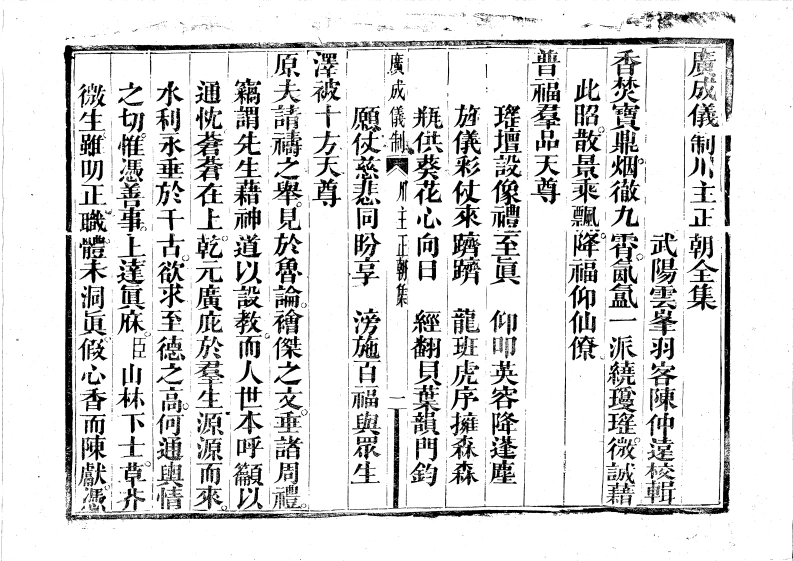 廣成儀制川主正朝全集
武陽雲峯羽客陳仲遠校輯
香焚寶鼎。烟徹九霄。氤氳一派繞瓊瑤。微誠藉
此昭。散景乘飈。降福仰仙僚
普福羣品天尊
瑤壇設像禮至眞　仰叩英容降蓬塵
旌儀彩仗來躋躋　龍班虎序擁森森
瓶供葵花心向日　經翻貝葉韻門鈞
願仗慈悲同盼享　滂施百福與眾生
廣成儀制　川主正朝集　一
澤被十方天尊
原夫請禱之舉。見於魯論。禬傑之文。垂諸周禮。
竊謂先生藉神道以設教。而人世本呼籲以
通忱。蒼蒼在上。乾元廣庇於羣生。源源而來。
水利永垂於千古。欲求至德之高。何通輿情
之切。惟憑善事。上達眞庥。臣山林下士。草芥
微生。雖叨正職。體未洞眞。假心香而陳獻。憑